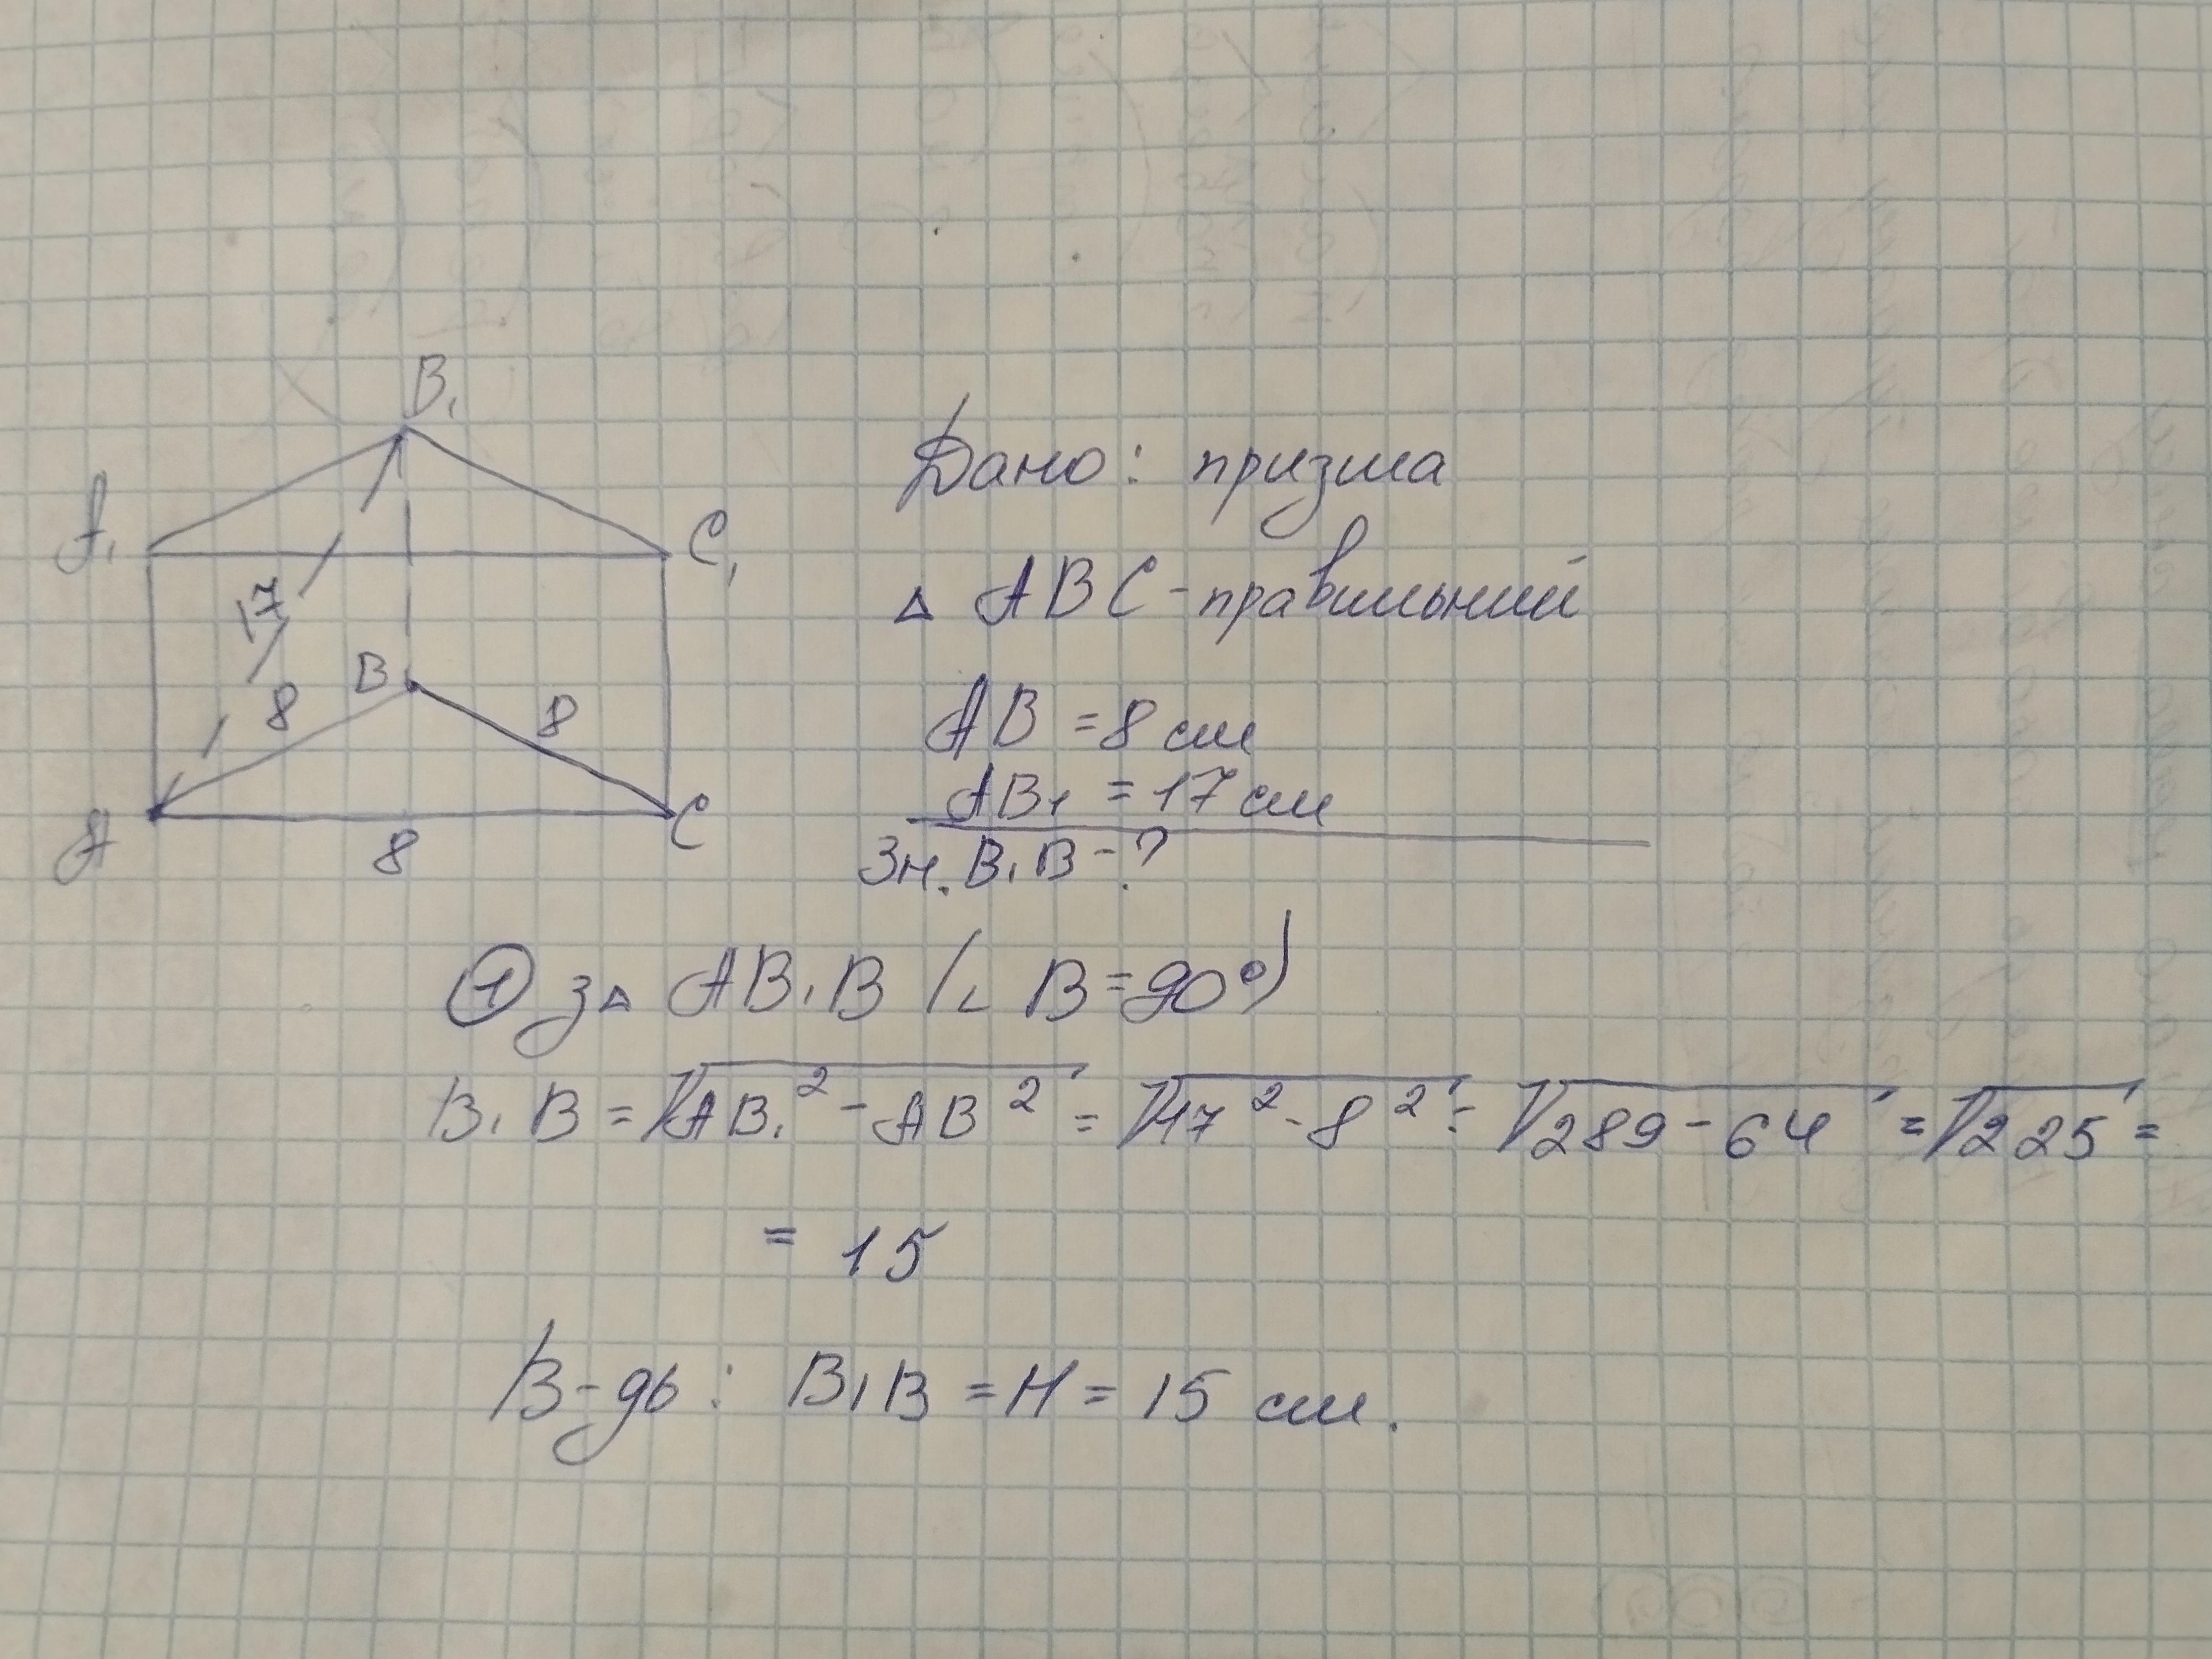 B₁
A₁
C₁
17
B
8
8
A
8
C
Дано: призма
△ ABC - правильний
AB = 8 см
AB₁ = 17 см
Зн. B₁B - ?
① з △ AB₁B (∠ B = 90°)
B₁B = √(AB₁² - AB²) = √(17² - 8²) = √(289 - 64) = √225 =
= 15
В-дь: B₁B = H = 15 см.